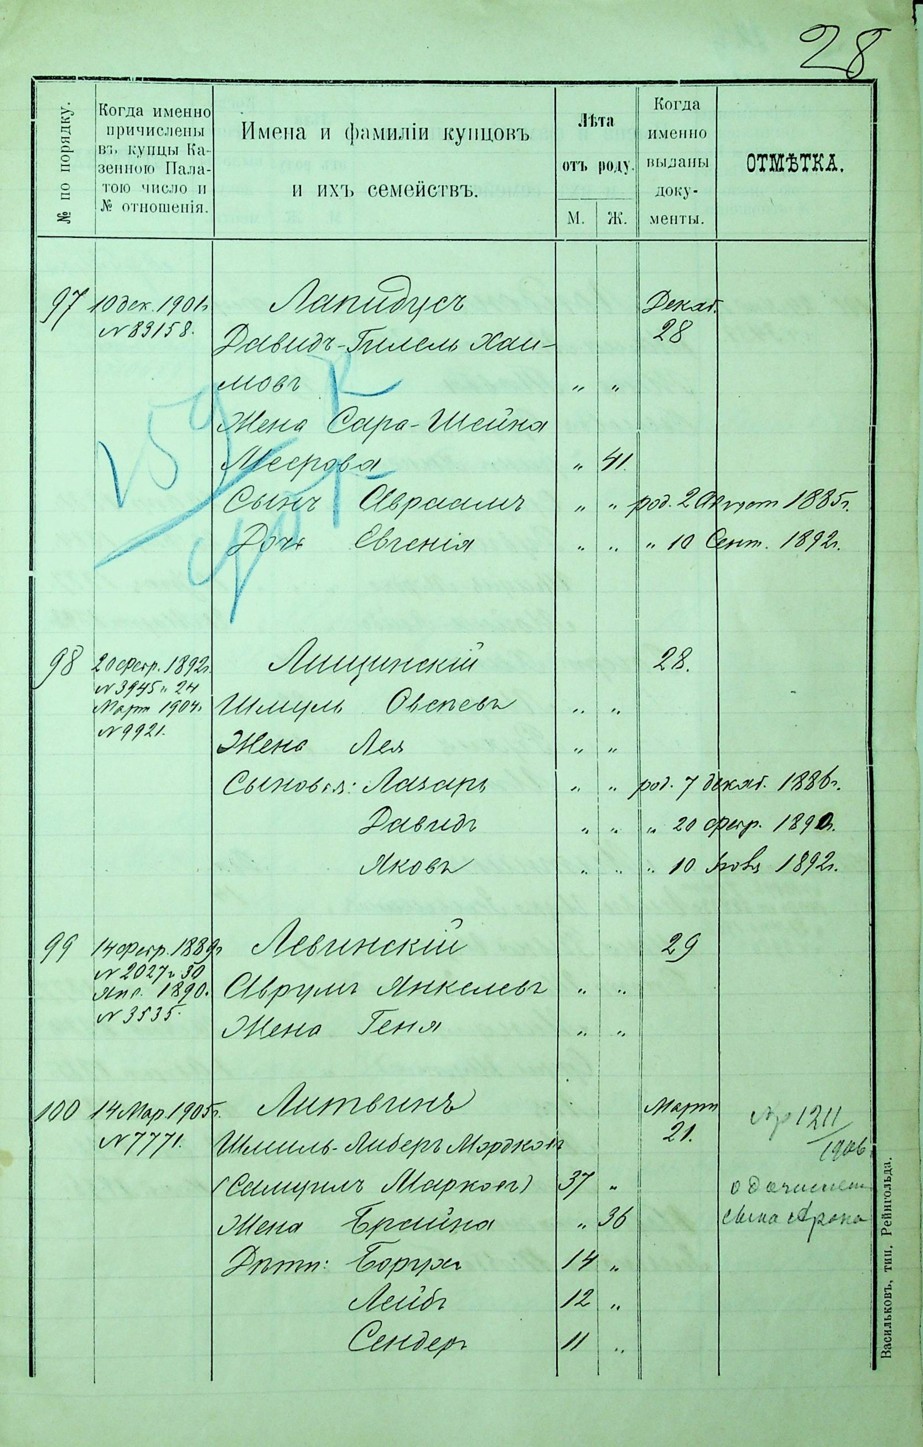 28
№ по порядку.
Когда именно
причислены
въ купцы Ка-
зенною Пала-
тою число и
№ отношенія.
Имена и фамиліи купцовъ
и ихъ семействъ.
Лѣта
отъ роду.
М. Ж.
Когда
именно
выданы
доку-
менты.
ОТМѢТКА.
97 10 дек. 1901 Лапидусъ Декаб.
№ 83158. Давидъ-Гилель Хаи- 28
мовъ " "
Жена Сара-Шейна
Меерова " 41
Сынъ Авраамъ " " род. 2 Август 1885г.
Дочь Евгенія " " " 10 Сент. 1892г.
98 20 Февр. 1892г. Лищинскій 28.
№ 3945 и 24
Март 1904г. Шмуль Овсѣевъ " "
№ 9921.
Жена Лея " "
Сыновья: Лазарь " " род. 7 декаб. 1886г.
Давидъ " " " 20 Февр. 1890г.
Яковъ " " " 10 Нояб 1892г.
99 14 Февр. 1889г. Левинскій 29
№ 2027 и 30
Янв. 1890. Аврумъ Янкелевъ " "
№ 3535.
Жена Геня " "
100 14 Мар. 1905г. Литвинъ Март
№ 7771. Шмиль-Либеръ Мордковъ 21. 1211/1906
(Самуилъ Марковъ) 37 "
Жена Брайна " 36 сына Арона
Дѣти: Борухъ 14 "
Лейбъ 12 "
Сендеръ 11 "
Васильковъ, тип. Рейнгольда.